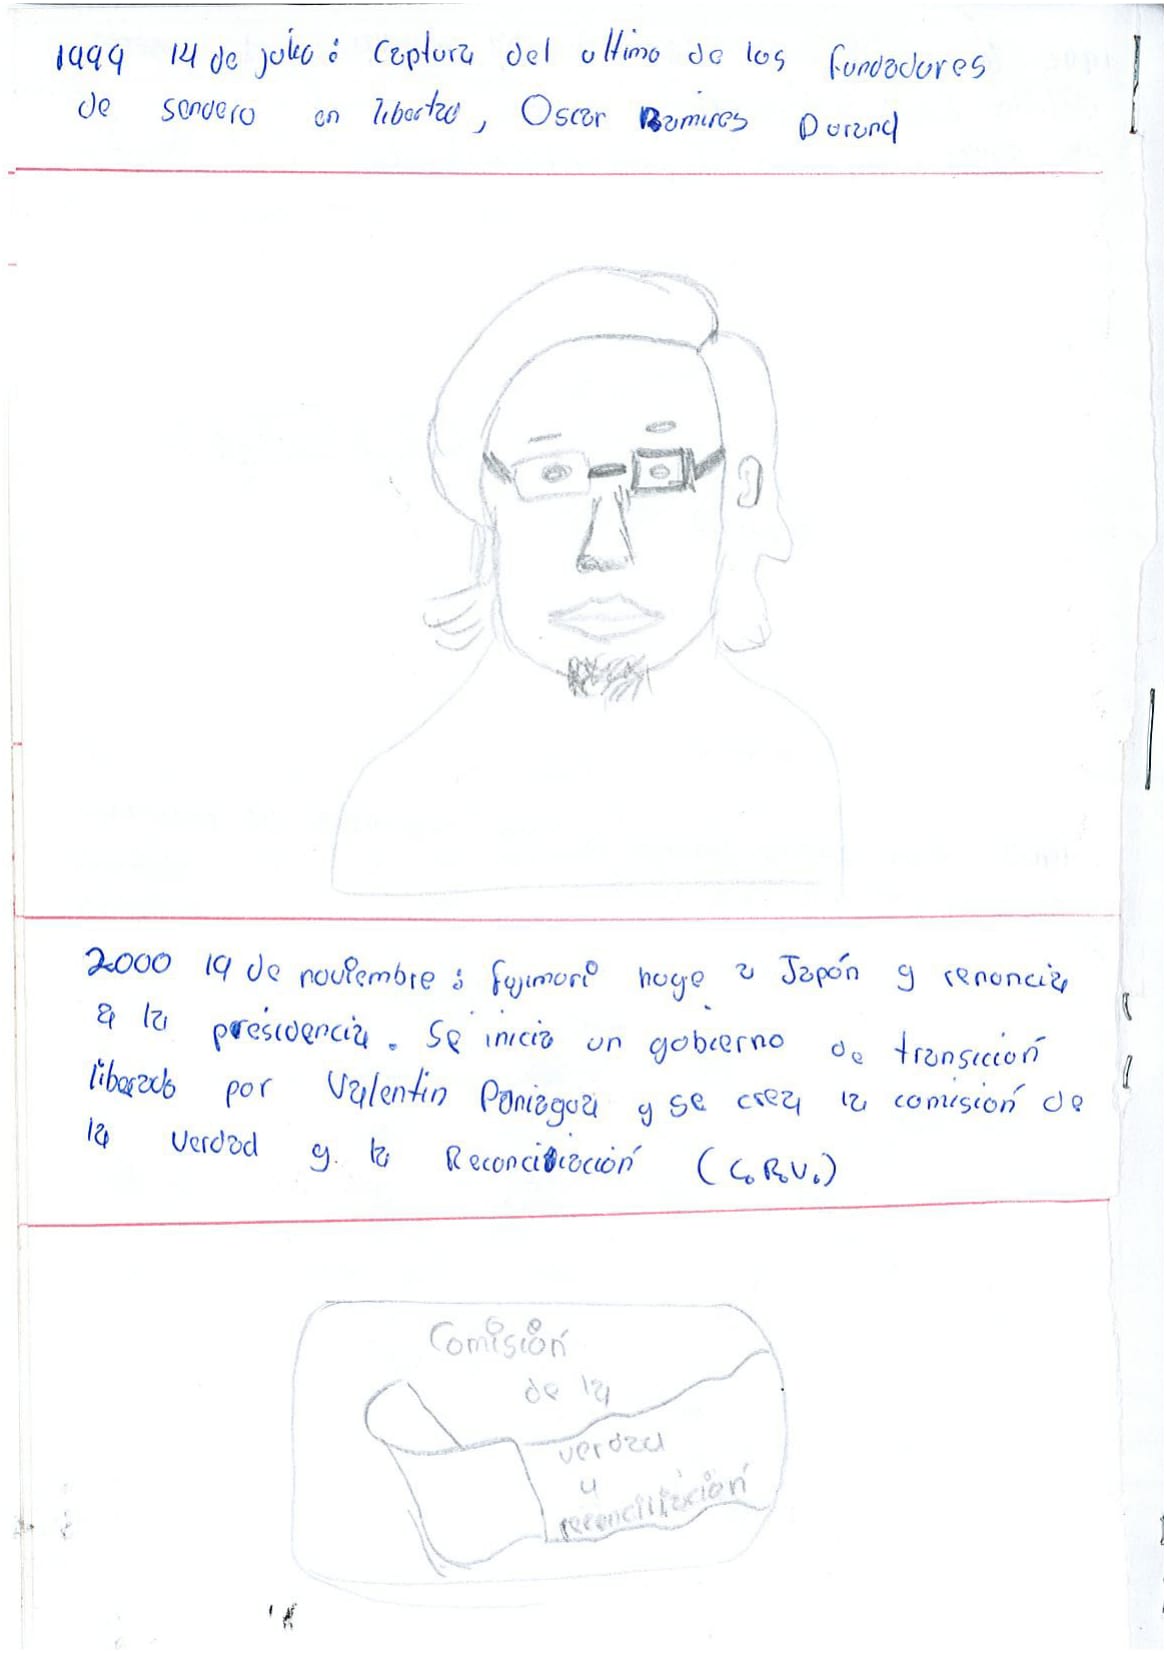 1999 14 de julio: Captura del ultimo de los fundadores
de sendero en libertad, Oscar Ramires Durand
2000 19 de noviembre: fujimori huye a Japón y renuncia
a la presidencia. Se inicia un gobierno de transición
liberado por Valentin Paniagua y se crea la comisión de
la verdad y la Reconciliación (C.R.V.)
Comisión
de la
verdad
y
reconciliación